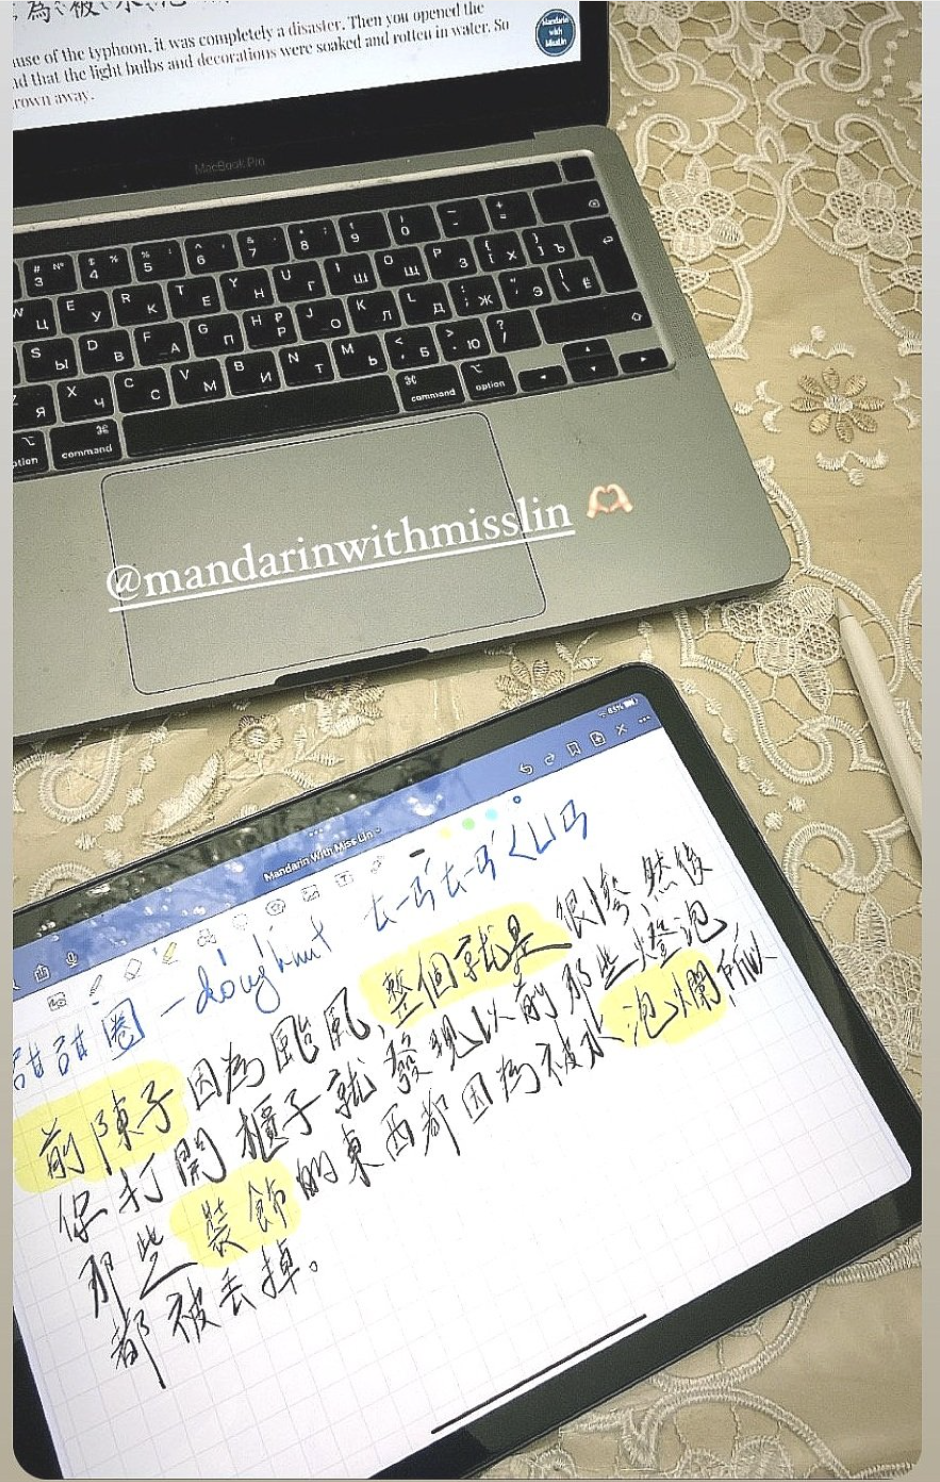 為被水泡
use of the typhoon, it was completely a disaster. Then you opened the
nd that the light bulbs and decorations were soaked and rotten in water. So
rown away.
Mandarin
with
MissLin
MacBook Pro
@mandarinwithmisslin
85%
Mandarin With Miss Lin
甜甜圈 - doughnut ㄊㄧㄢˊㄊㄧㄢˊㄑㄩㄢ
前陣子因為颱風,整個就是很慘,然後
你打開櫃子就發現以前那些燈泡
那些裝飾的東西都因為被水泡爛所以
都被丟掉。